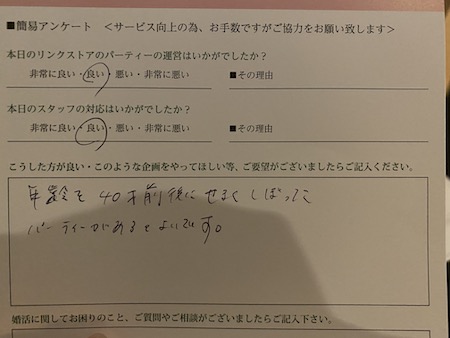 ■簡易アンケート ＜サービス向上の為、お手数ですがご協力をお願い致します＞
本日のリンクストアのパーティーの運営はいかがでしたか？
非常に良い・良い・悪い・非常に悪い ■その理由
本日のスタッフの対応はいかがでしたか？
非常に良い・良い・悪い・非常に悪い ■その理由
こうした方が良い・このような企画をやってほしい等、ご要望がございましたらご記入ください。
年齢を40才前後にせまくしぼった
パーティーがあるとよいです。
婚活に関してお困りのこと、ご質問やご相談がございましたらご記入下さい。